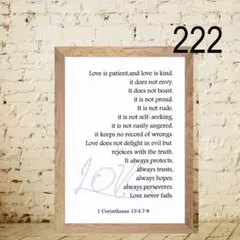 222
Love is patient,and love is kind.
it does not envy.
it does not beast.
it is not proud.
It is not rude.
it is not self-seeking.
it is not easily angered.
it keeps no record of wrongs.
Love does not delight in evil but
rejoices with the truth.
It always protects,
always trusts,
always hopes,
always perseveres.
Love never fails.
Love
1 Corinthians 13:4,7-8